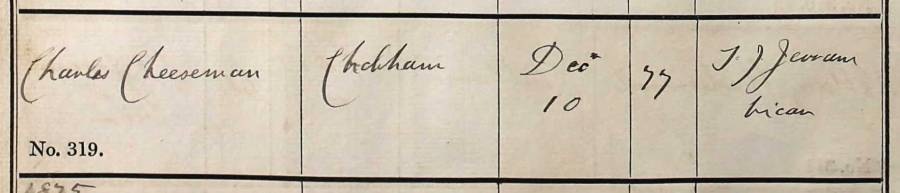 Charles Cheeseman
Chobham
Decr
10
77
T. J Jerram
Vicar
No. 319.
1875